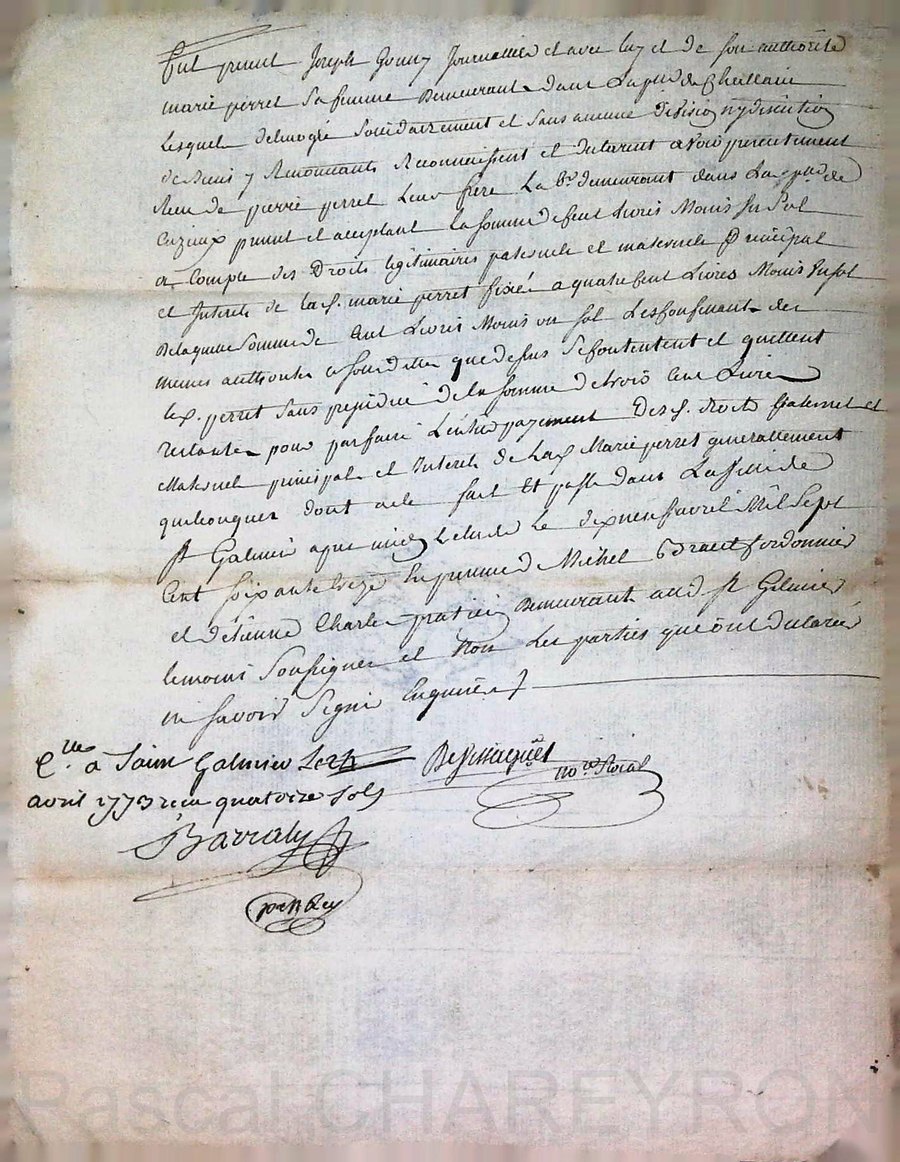 fut present Joseph Gonny Journallier et avec luy et de son authorité
marie perret sa femme Demeurants dans La psse de
Lesquels de leur gré solidairement et sans aucune Division ny discution
de Biens y Renonceants Reconnaissent et declarent avoir presentement
Receu de pierre perret Leur frere La br demeurant dans La psse de
Cuzieux present et acceptant La somme de Cent Livres Moins un sol
a Compte des Droits legitimaires paternels et maternels principal
et Interets de lad. marie perret fixée a quatre Cent Livres Moins un sol
De laquelle somme de Cent Livres Moins un sol Lesd
memes authorité que dessus se Contentent et quittent
led. perret sans prejudice de la somme de trois Cent Livres
restantes pour parfaire L'entier payement Desd. droits paternels et
Maternels principal et Interets de Lad Marie perret generallement
quelconques dont acte fait Et passé dans La ville de
st Galmier apres midy Letude Le dix neuf avril Mil Sept
Cent soixante treize En presence de Michel Cordonnier
et d'etienne Charles praticien Demeurants aud st Galmier
temoins soussignes et Non Les parties que ont declarées
ne savoir signer Enquises
C.lle a Saint Galmier Le
avril 1773 recu quatorze sols
no.re Roial
Barraly
par R Rey
Pascal CHAREYRON